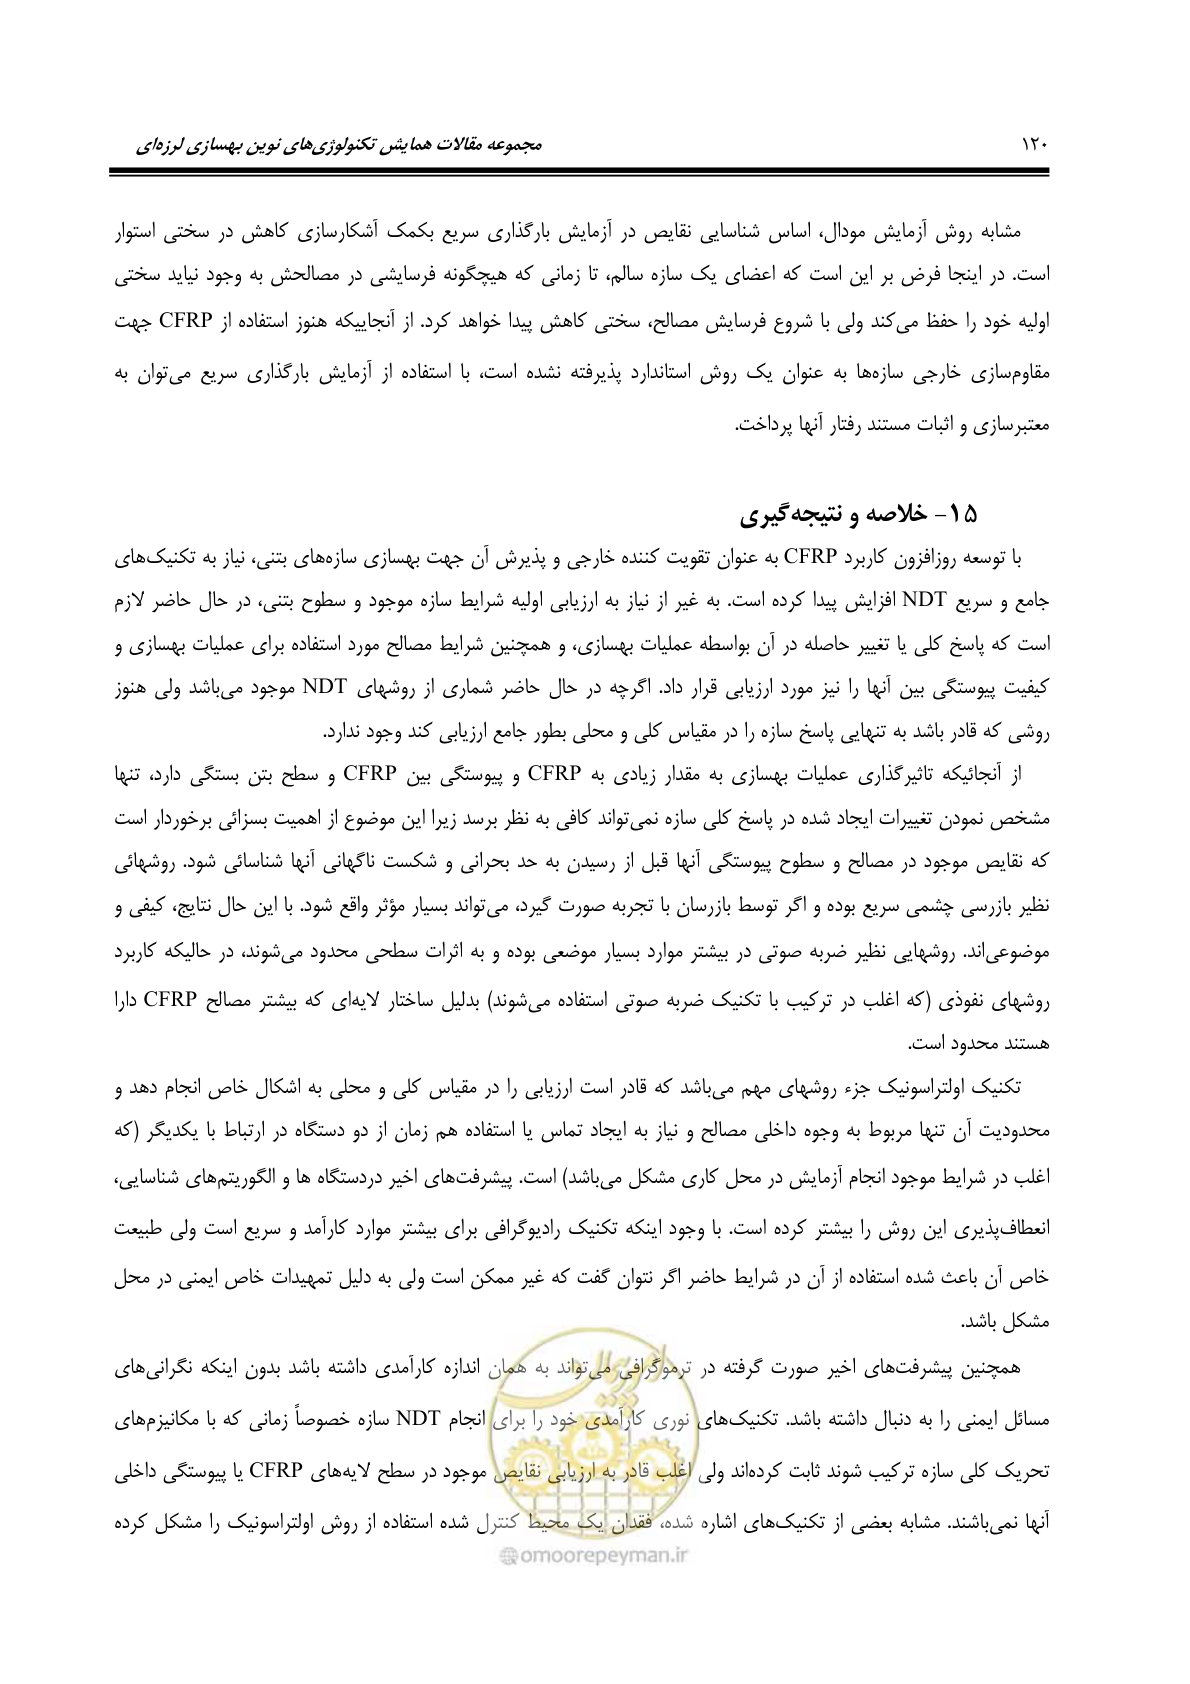 ۱۲۰
مجموعه مقالات همایش تکنولوژی‌های نوین بهسازی لرزه‌ای
مشابه روش آزمایش مودال، اساس شناسایی نقایص در آزمایش بارگذاری سریع بکمک آشکارسازی کاهش در سختی استوار
است. در اینجا فرض بر این است که اعضای یک سازه سالم، تا زمانی که هیچگونه فرسایشی در مصالحش به وجود نیاید سختی
اولیه خود را حفظ می‌کند ولی با شروع فرسایش مصالح، سختی کاهش پیدا خواهد کرد. از آنجاییکه هنوز استفاده از CFRP جهت
مقاوم‌سازی خارجی سازه‌ها به عنوان یک روش استاندارد پذیرفته نشده است، با استفاده از آزمایش بارگذاری سریع می‌توان به
معتبرسازی و اثبات مستند رفتار آنها پرداخت.
۱۵- خلاصه و نتیجه‌گیری
با توسعه روزافزون کاربرد CFRP به عنوان تقویت کننده خارجی و پذیرش آن جهت بهسازی سازه‌های بتنی، نیاز به تکنیک‌های
جامع و سریع NDT افزایش پیدا کرده است. به غیر از نیاز به ارزیابی اولیه شرایط سازه موجود و سطوح بتنی، در حال حاضر لازم
است که پاسخ کلی یا تغییر حاصله در آن بواسطه عملیات بهسازی، و همچنین شرایط مصالح مورد استفاده برای عملیات بهسازی و
کیفیت پیوستگی بین آنها را نیز مورد ارزیابی قرار داد. اگرچه در حال حاضر شماری از روشهای NDT موجود می‌باشد ولی هنوز
روشی که قادر باشد به تنهایی پاسخ سازه را در مقیاس کلی و محلی بطور جامع ارزیابی کند وجود ندارد.
از آنجائیکه تاثیرگذاری عملیات بهسازی به مقدار زیادی به CFRP و پیوستگی بین CFRP و سطح بتن بستگی دارد، تنها
مشخص نمودن تغییرات ایجاد شده در پاسخ کلی سازه نمی‌تواند کافی به نظر برسد زیرا این موضوع از اهمیت بسزائی برخوردار است
که نقایص موجود در مصالح و سطوح پیوستگی آنها قبل از رسیدن به حد بحرانی و شکست ناگهانی آنها شناسائی شود. روشهائی
نظیر بازرسی چشمی سریع بوده و اگر توسط بازرسان با تجربه صورت گیرد، می‌تواند بسیار مؤثر واقع شود. با این حال نتایج، کیفی و
موضوعی‌اند. روشهایی نظیر ضربه صوتی در بیشتر موارد بسیار موضعی بوده و به اثرات سطحی محدود می‌شوند، در حالیکه کاربرد
روشهای نفوذی (که اغلب در ترکیب با تکنیک ضربه صوتی استفاده می‌شوند) بدلیل ساختار لایه‌ای که بیشتر مصالح CFRP دارا
هستند محدود است.
تکنیک اولتراسونیک جزء روشهای مهم می‌باشد که قادر است ارزیابی را در مقیاس کلی و محلی به اشکال خاص انجام دهد و
محدودیت آن تنها مربوط به وجوه داخلی مصالح و نیاز به ایجاد تماس یا استفاده هم زمان از دو دستگاه در ارتباط با یکدیگر (که
اغلب در شرایط موجود انجام آزمایش در محل کاری مشکل می‌باشد) است. پیشرفت‌های اخیر دردستگاه ها و الگوریتم‌های شناسایی،
انعطاف‌پذیری این روش را بیشتر کرده است. با وجود اینکه تکنیک رادیوگرافی برای بیشتر موارد کارآمد و سریع است ولی طبیعت
خاص آن باعث شده استفاده از آن در شرایط حاضر اگر نتوان گفت که غیر ممکن است ولی به دلیل تمهیدات خاص ایمنی در محل
مشکل باشد.
همچنین پیشرفت‌های اخیر صورت گرفته در ترموگرافی می‌تواند به همان اندازه کارآمدی داشته باشد بدون اینکه نگرانی‌های
مسائل ایمنی را به دنبال داشته باشد. تکنیک‌های نوری کارآمدی خود را برای انجام NDT سازه خصوصاً زمانی که با مکانیزم‌های
تحریک کلی سازه ترکیب شوند ثابت کرده‌اند ولی اغلب قادر به ارزیابی نقایص موجود در سطح لایه‌های CFRP یا پیوستگی داخلی
آنها نمی‌باشند. مشابه بعضی از تکنیک‌های اشاره شده، فقدان یک محیط کنترل شده استفاده از روش اولتراسونیک را مشکل کرده
امور پیمان
@omoorepeyman.ir